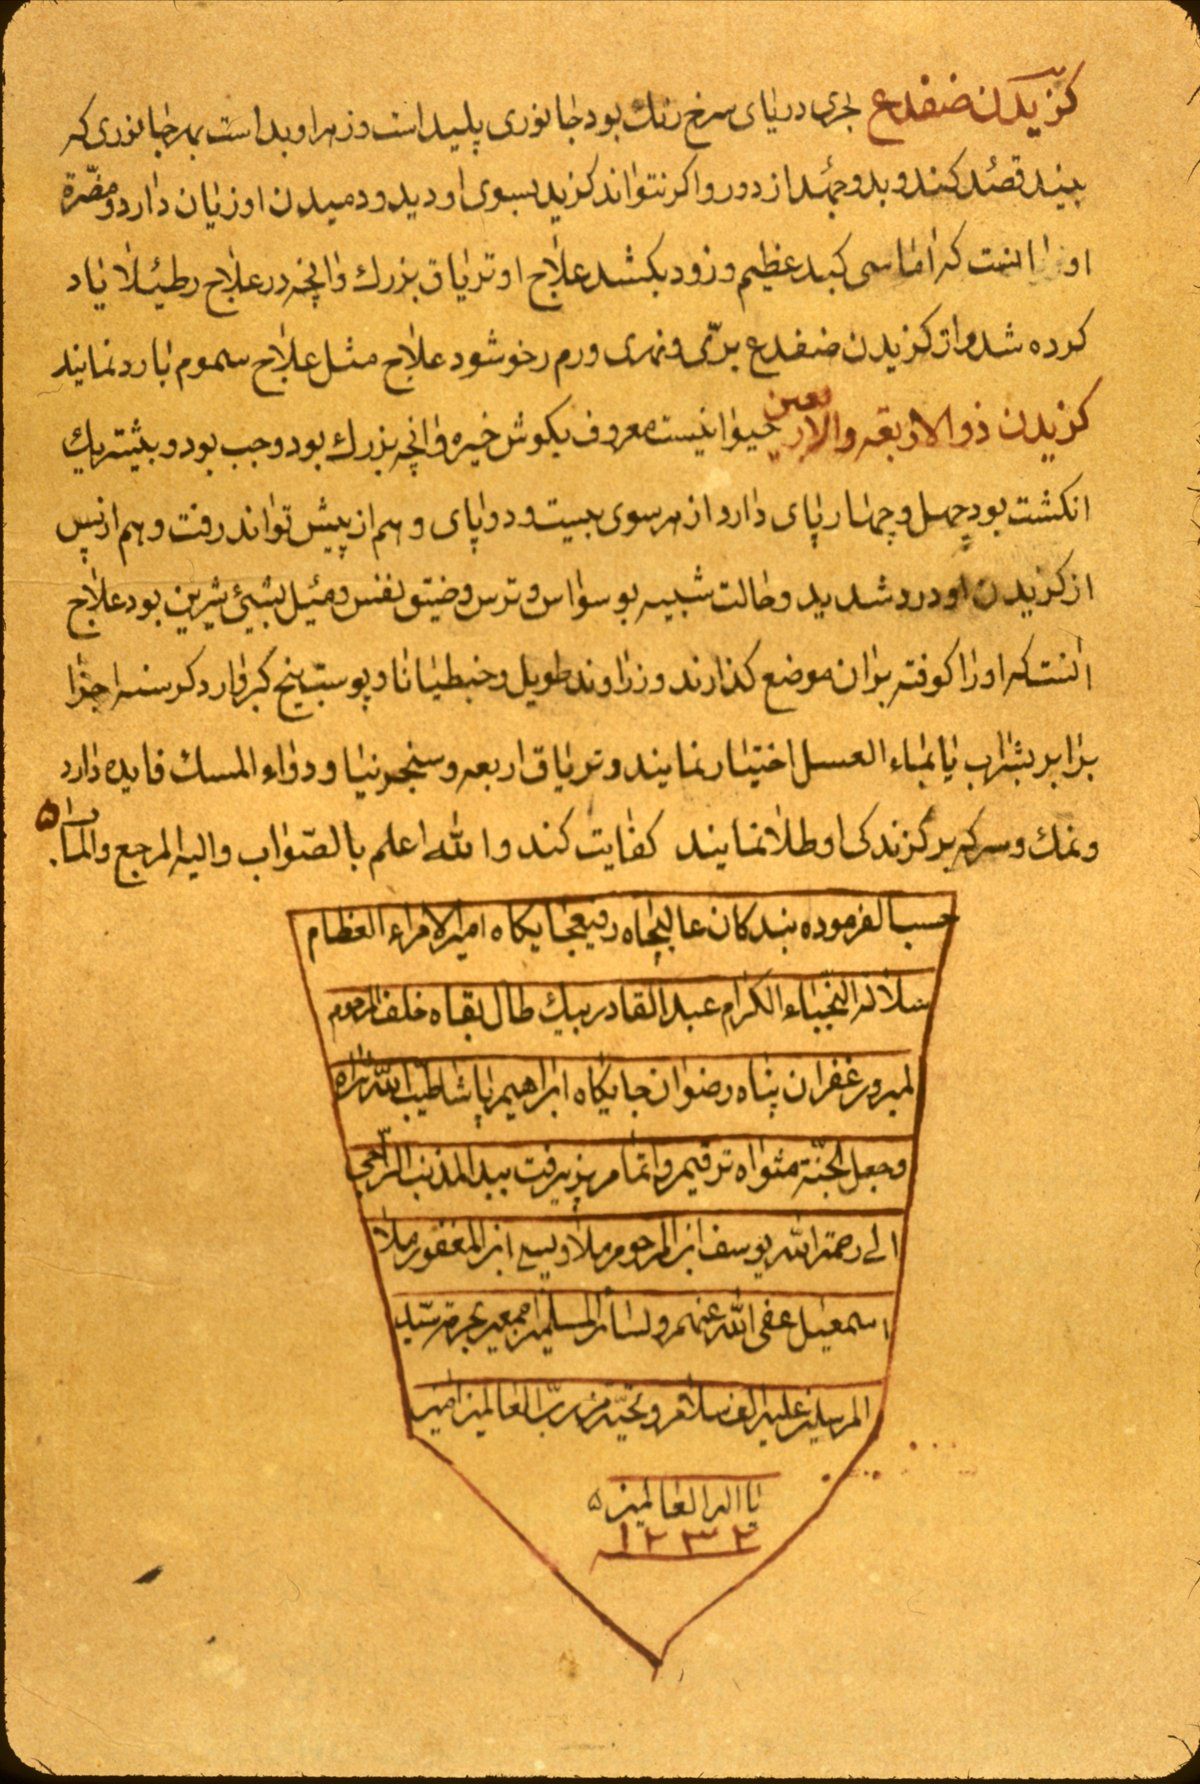 کزیدن ضفدع بحری دریای سرخ رنك بود جانوری پلید است و زهر او بد است بهر جانوری که
بیند قصد کند و بدو جهد از دور و اکر نتواند کزید بسوی او دمد و دمیدن او زیان دارد و مضرة
او انست که اماسی کند عظیم و زود بکشد علاج او تریاق بزرك و انچه در علاج رطیلا یاد
کرده شد و از کزیدن ضفدع برّی و نهری ورم رخو شود علاج مثل علاج سموم بارد نمایند
کزیدن ذو الاربعه والاربعین حیوانیست معروف بکوش خیره و انچه بزرك بود وجب بود و بیشتر یك
انکشت بود چهل و چهار پای دارد از هر سوی بیست و دو پای و هم از پیش تواند رفت و هم از پس
از کزیدن او درد شدید و حالت شبیه بوسواس و ترس و ضیق نفس و میل بشیئ شیرین بود علاج
انست که او را کوفته بر ان موضع کذارند و زراوند طویل و خبطیانا و پوست بیخ کبر و ارد کرسنه اجزا
برابر بشراب یا بماء العسل اختیار نمایند و تریاق اربعه و سنجرنیا و دواء المسك فایده دارد
و نمك و سرکه بر کزندکی او طلا نمایند کفایت کند و الله اعلم بالصّواب و الیه المرجع و الماٰب
حسب الفرموده بندکان عالیجاه رفیعجایکاه امیر الامراء العظام
سلالة النجباء الکرام عبد القادر بیك طال بقاه خلف المرحوم
المبرور غفران پناه رضوان جایکاه ابراهیم پاشا طیب الله ثراه
و جعل الجنّة مثواه ترقیم و اتمام پزیرفت بید المذنب الراجی
الی رحمة الله یوسف ابن المرحوم ملا ویسی ابن المغفور ملا
اسمعیل عفی الله عنهم و لسائر المسلمین اجمعین بحرمة سیّد
المرسلین علیه الف سلام و تحیّة من ربّ العالمین امین
یا اله العالمین ٥
١٢٣٢